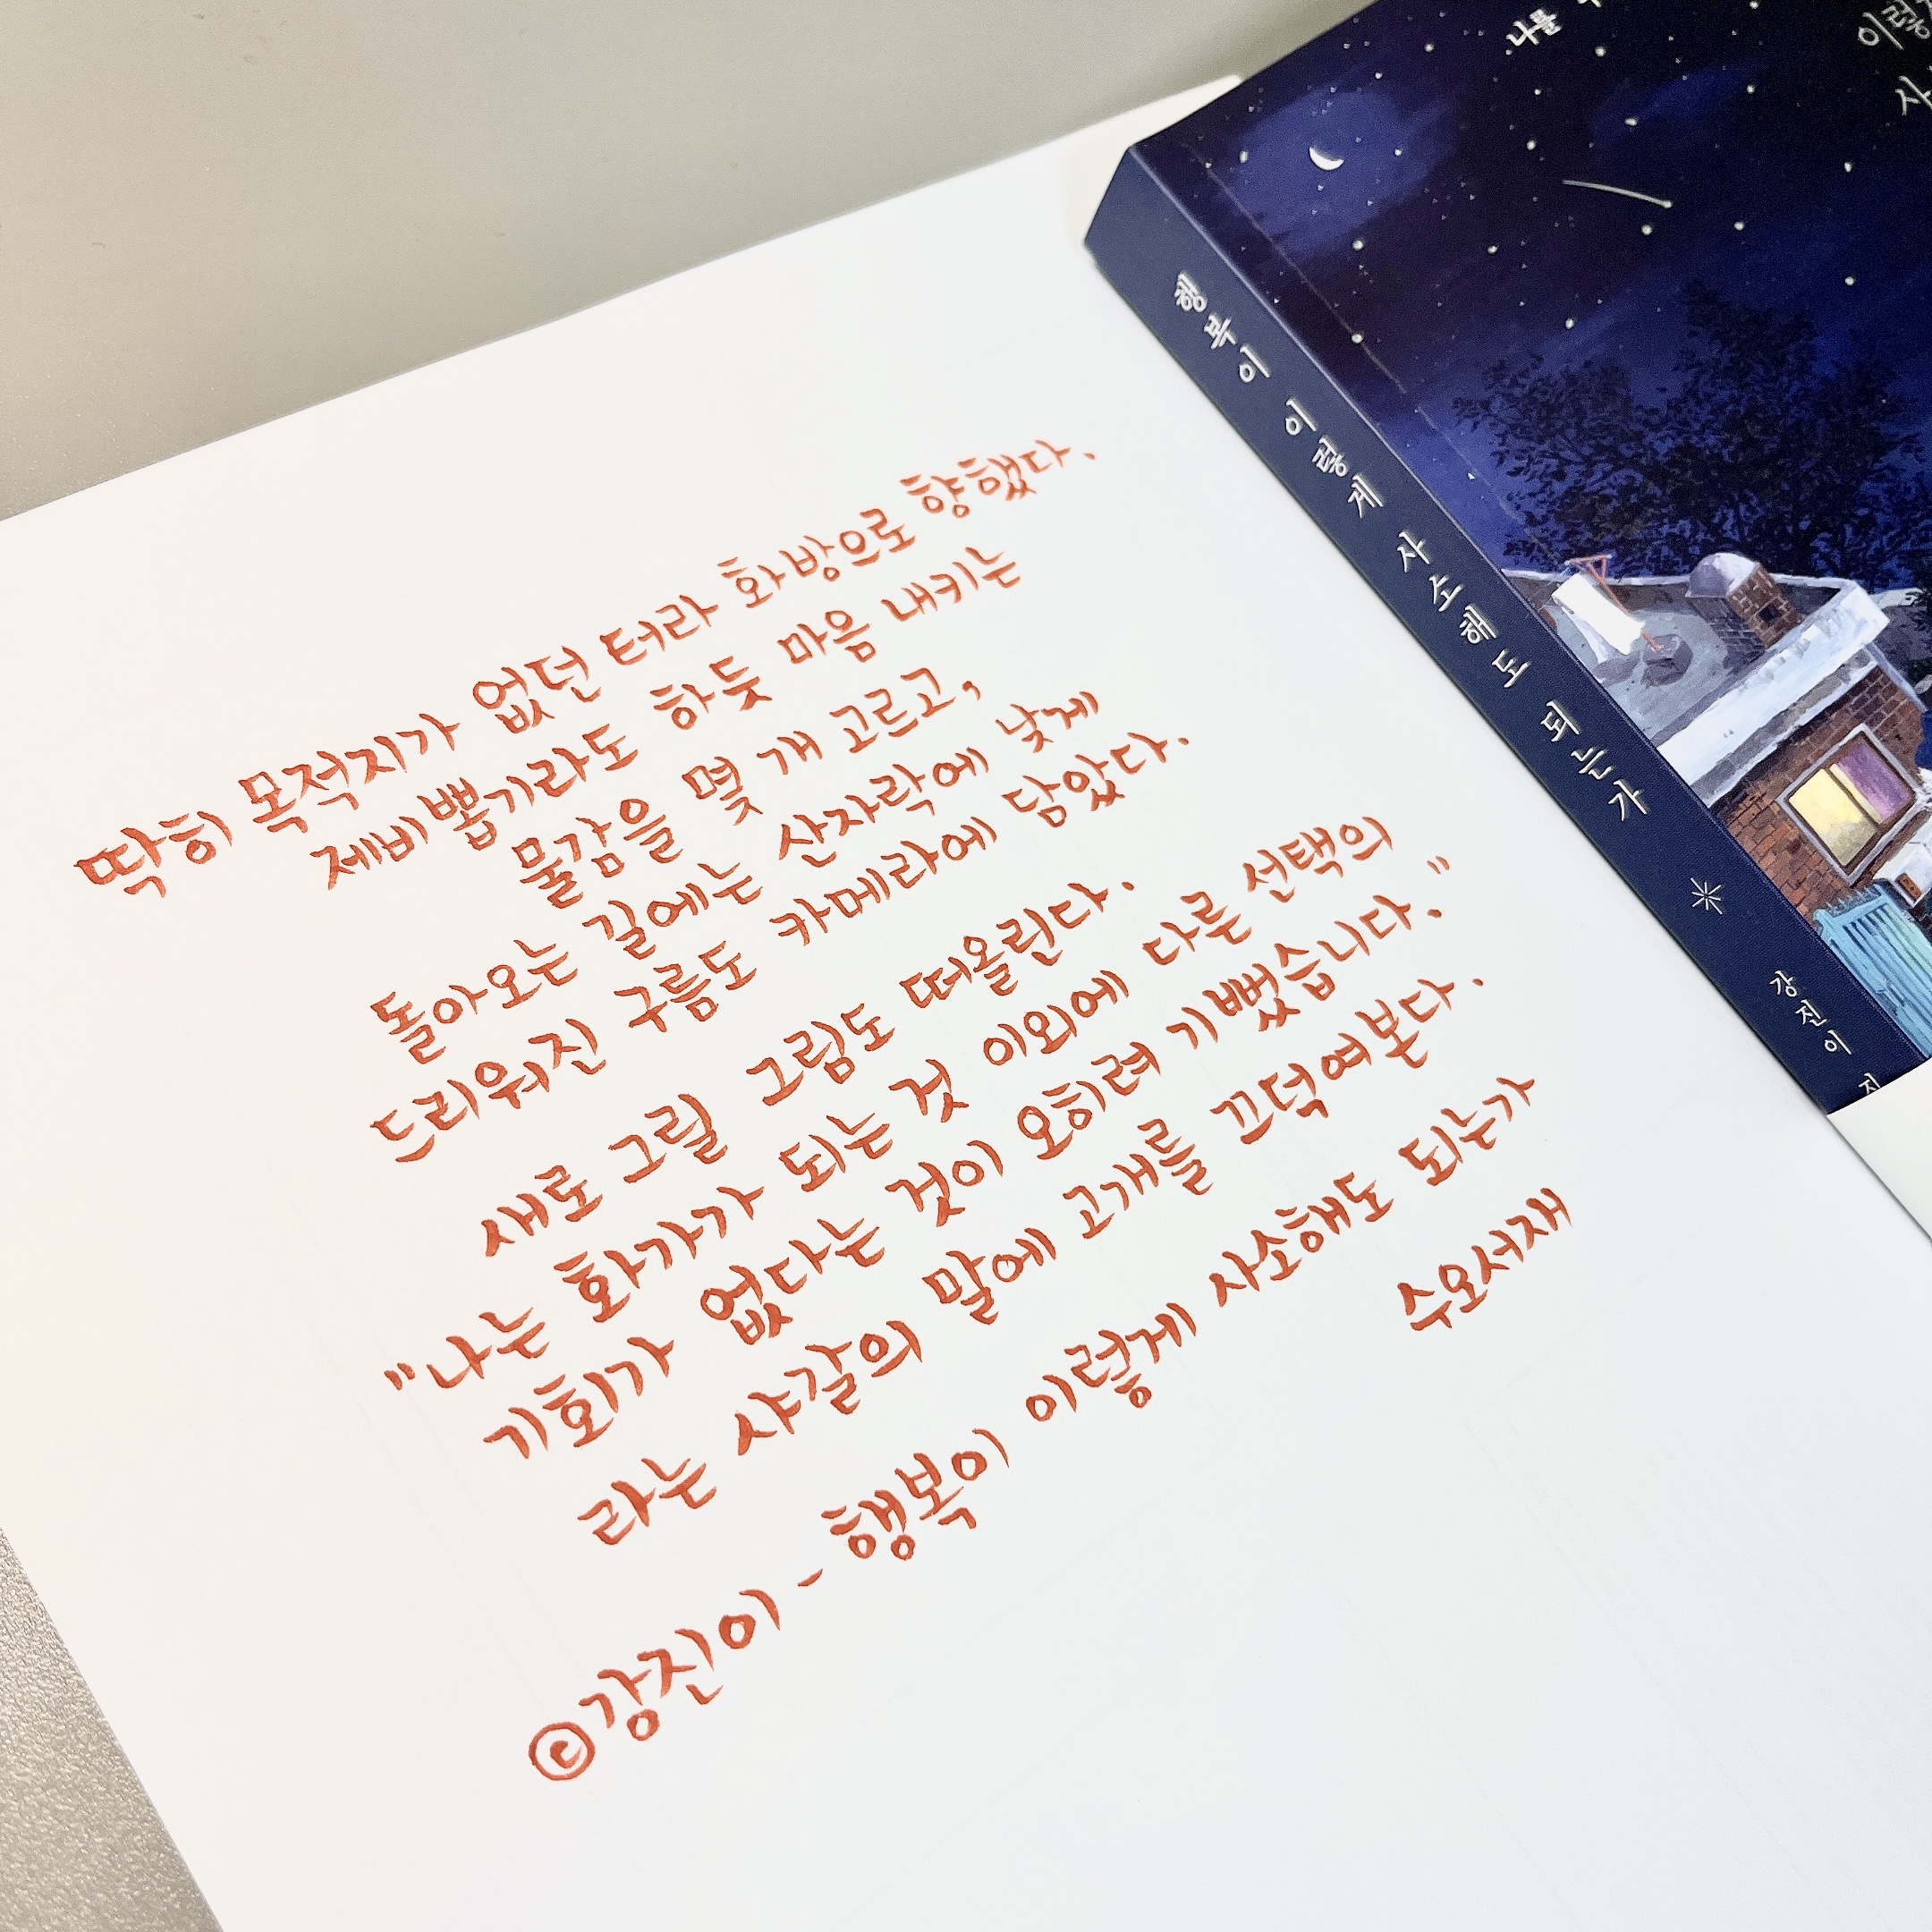 딱히 목적지가 없던 터라 화방으로 향했다.
제비뽑기라도 하듯 마음 내키는
물감을 몇 개 고르고,
돌아오는 길에는 산자락에 낮게
드리워진 구름도 카메라에 담았다.
새로 그릴 그림도 떠올린다.
"나는 화가가 되는 것 이외에 다른 선택의
기회가 없다는 것이 오히려 기뻤습니다."
라는 샤갈의 말에 고개를 끄덕여본다.
©강진이 - 행복이 이렇게 사소해도 되는가
수오서재
나를
이렇
사
행복이 이렇게 사소해도 되는가 강진이 지